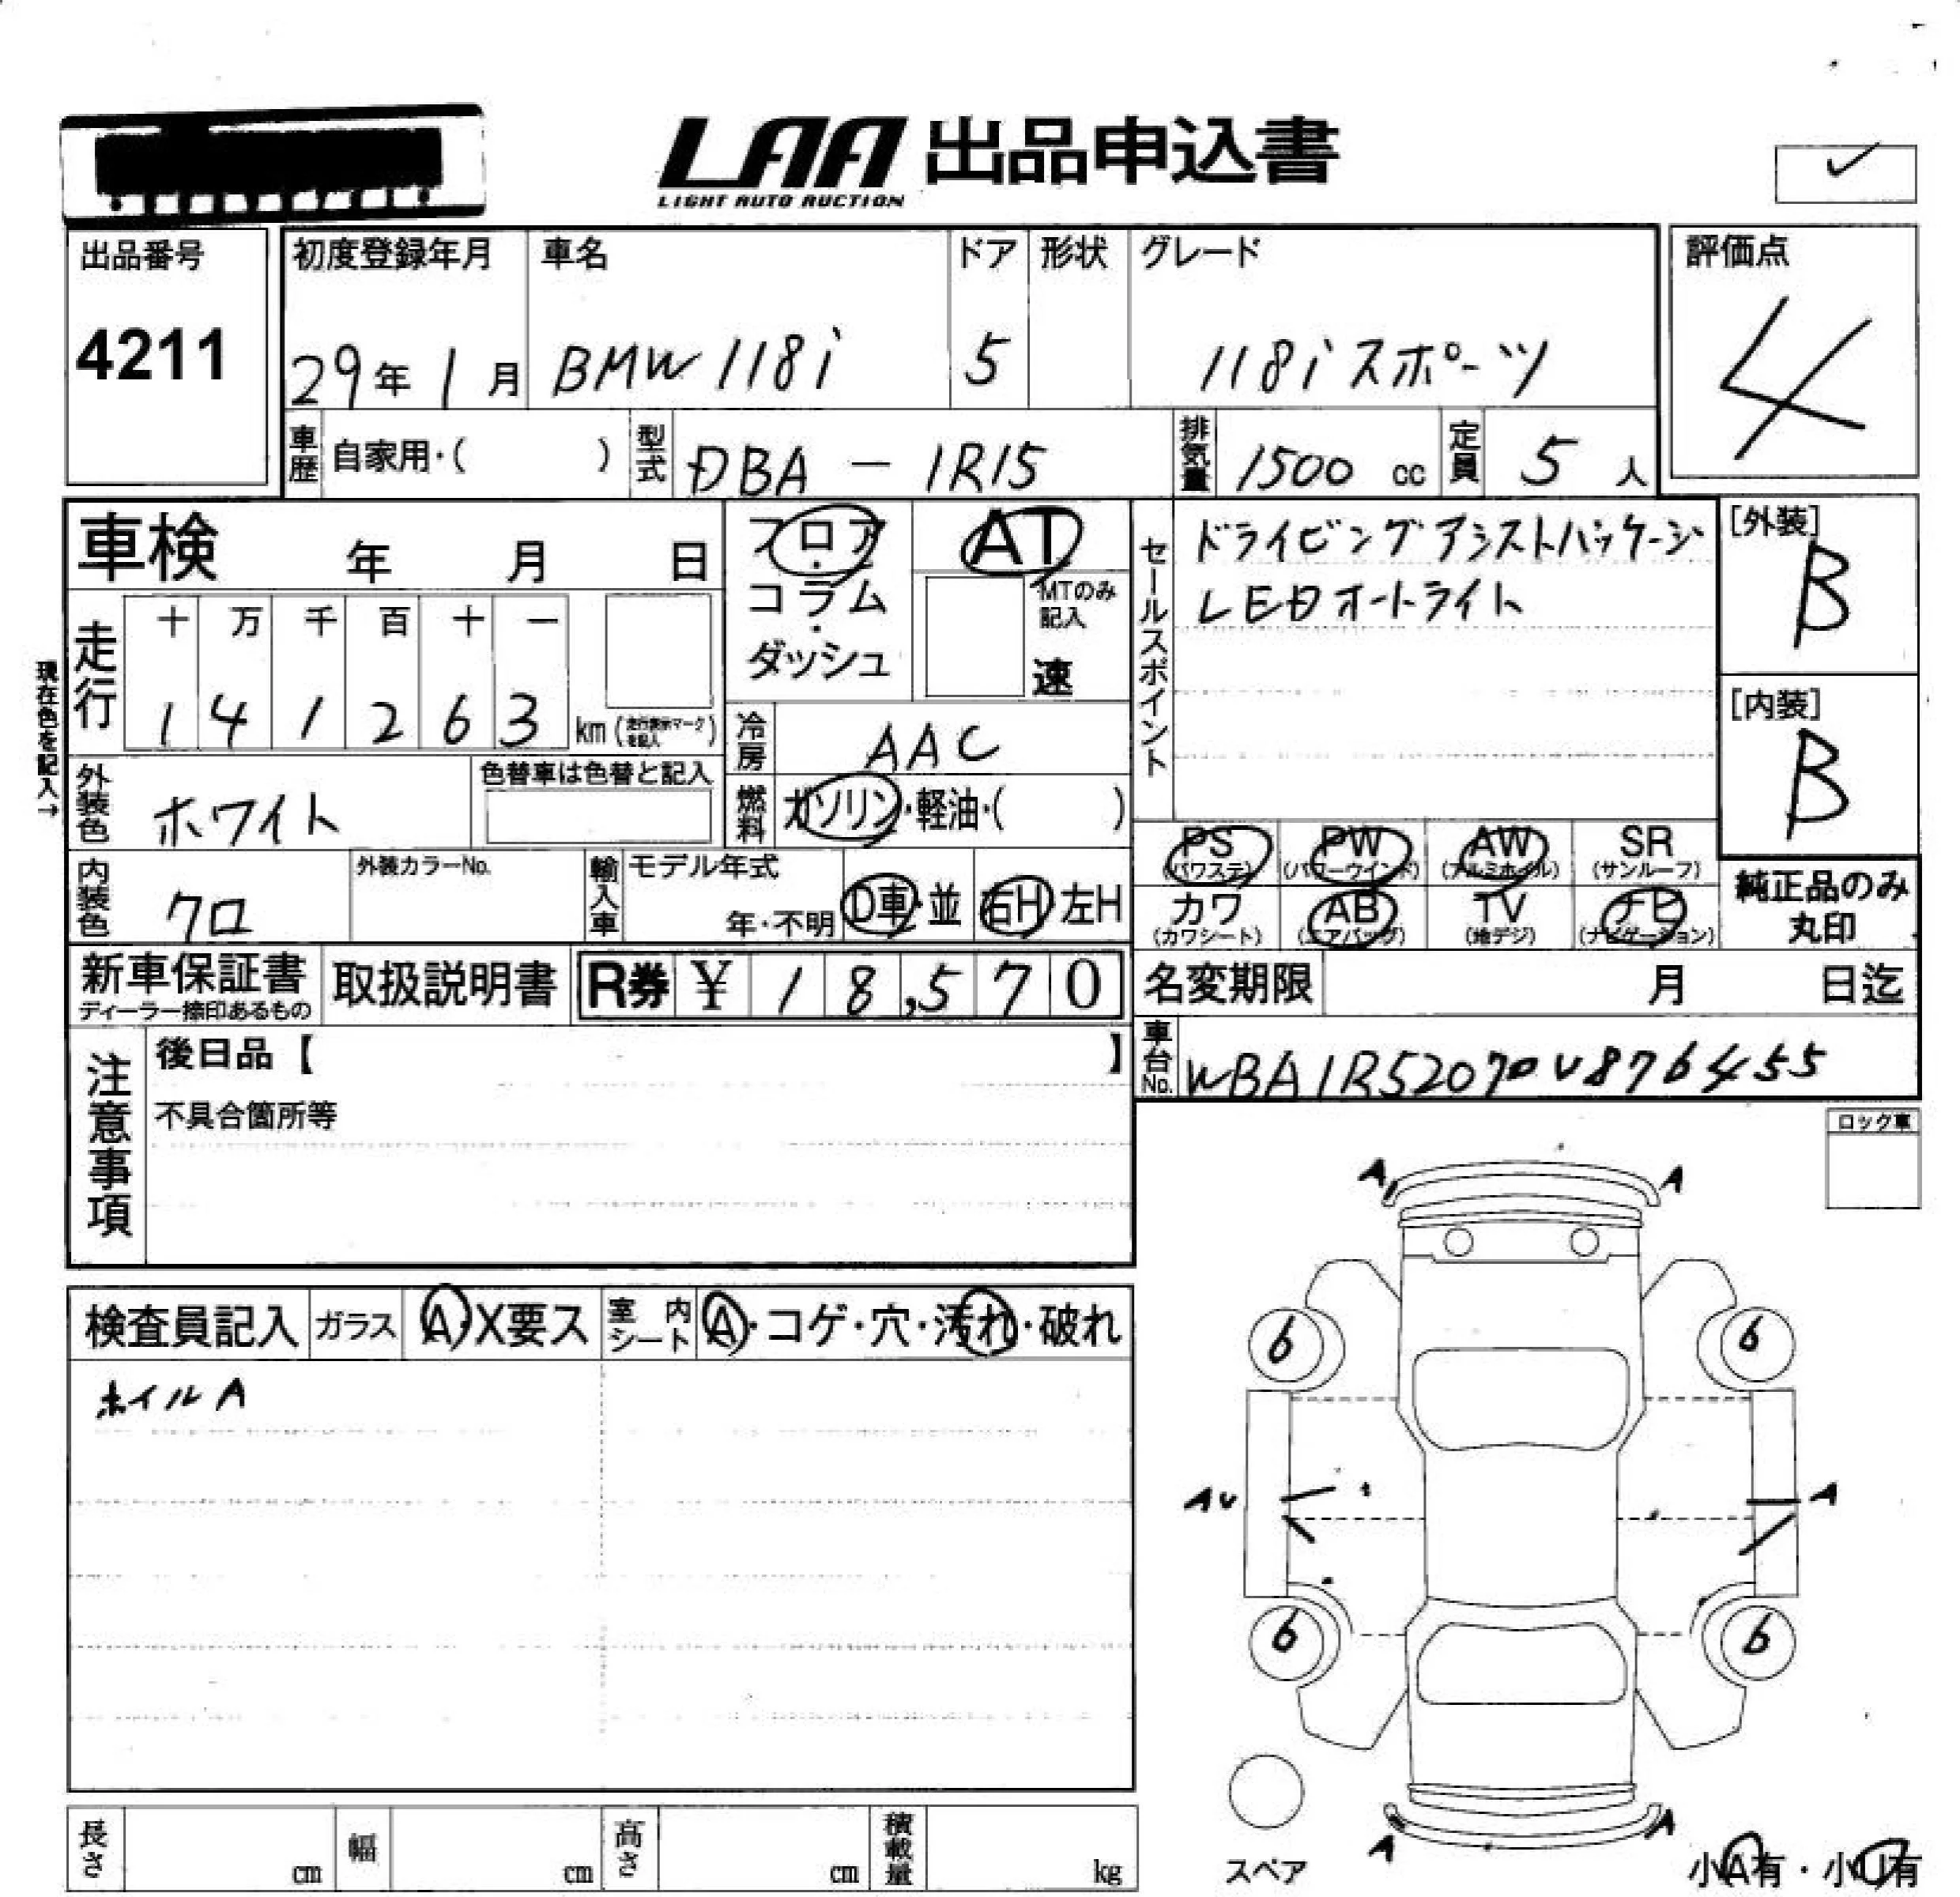 LAA 出品申込書
LIGHT AUTO AUCTION
✓
出品番号
4211
初度登録年月
29年 1月
車名
BMW 118i
ドア
5
形状
グレード
118i スポーツ
評価点
4
車歴 自家用・( )
型式 DBA - 1R15
排気量 1500 cc
定員 5 人
車検 年 月 日
フロア・
コラム・
ダッシュ
AT
MTのみ
記入
速
セールスポイント
ドライビングアシストパッケージ
LEDオートライト
[外装]
B
[内装]
B
現在色を記入→
走行
十 万 千 百 十 一
1 4 1 2 6 3 km (走行表示マークを記入)
冷房 AAC
外装色 ホワイト
色替車は色替と記入
燃料 ガソリン・軽油・( )
PS
(パワステ)
PW
(パワーウインド)
AW
(アルミホイル)
SR
(サンルーフ)
カワ
(カワシート)
AB
(エアバッグ)
TV
(地デジ)
ナビ
(ナビゲーション)
純正品のみ
丸印
内装色 クロ
外装カラーNo.
輸入車
モデル年式
年・不明
D車・並
右H 左H
新車保証書
ディーラー捺印あるもの
取扱説明書
R券 ¥ 18,570
名変期限 月 日迄
車台No. WBA1R52070V876455
注意事項
後日品【 】
不具合箇所等
ロック車
検査員記入
ガラス A・X要ス
室内シート A・コゲ・穴・汚れ・破れ
ホイルA
A A
6 6
AU A
6 6
A A
スペア
小A有・小U有
長さ cm
幅 cm
高さ cm
積載量 kg